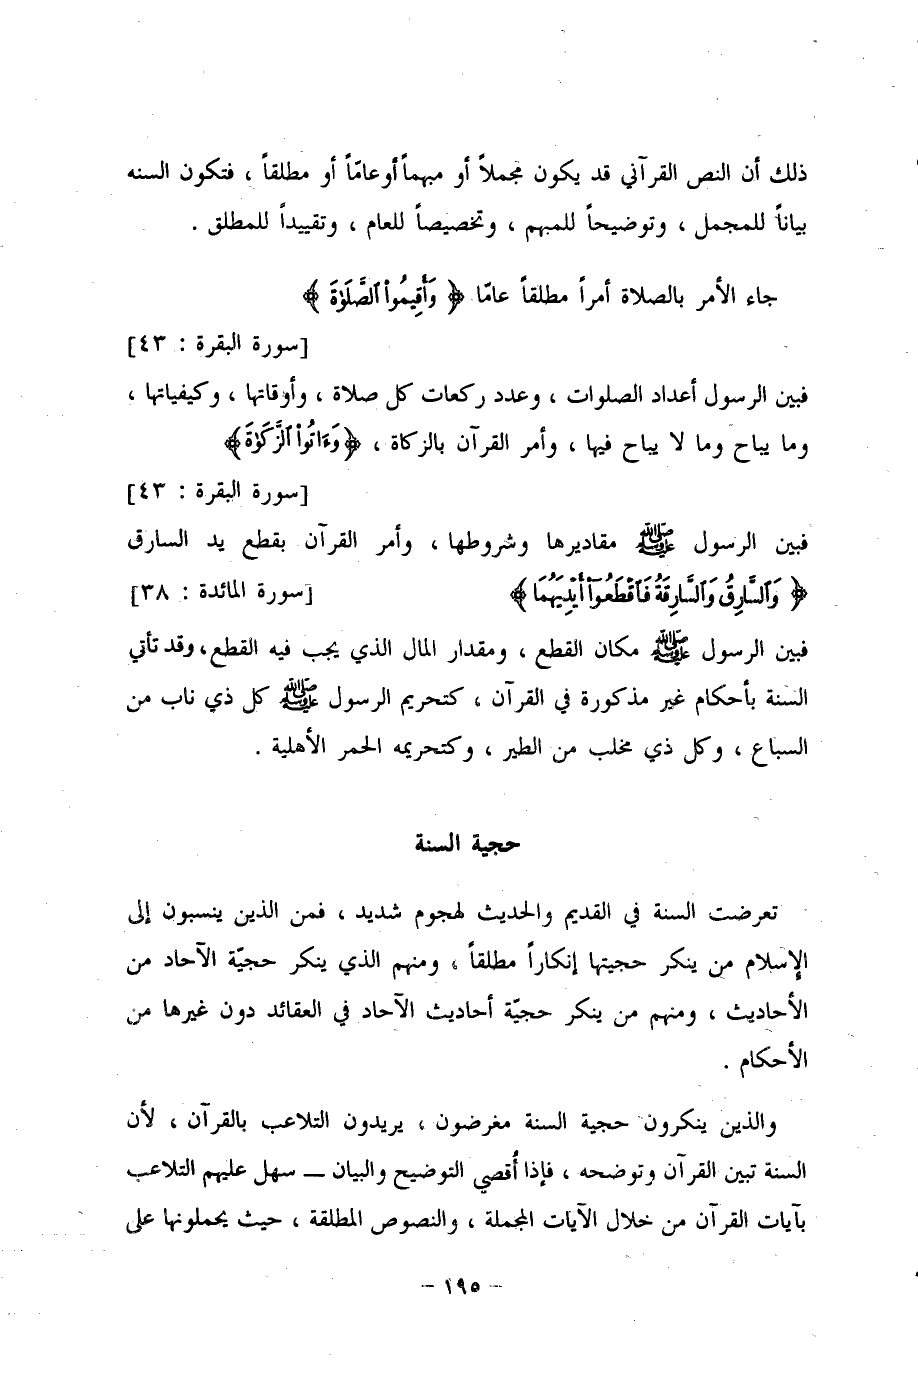 ذلك أن النص القرآني قد يكون مجملاً أو مبهماً أو عامّاً أو مطلقاً ، فتكون السنه
بياناً للمجمل ، وتوضيحاً للمبهم ، وتخصيصاً للعام ، وتقييداً للمطلق .
جاء الأمر بالصلاة أمراً مطلقاً عامّا ﴿ وَأَقِيمُوا۟ ٱلصَّلَوٰةَ ﴾
[سورة البقرة : ٤٣]
فبين الرسول أعداد الصلوات ، وعدد ركعات كل صلاة ، وأوقاتها ، وكيفياتها ،
وما يباح وما لا يباح فيها ، وأمر القرآن بالزكاة ، ﴿وَءَاتُوا۟ ٱلزَّكَوٰةَ﴾
[سورة البقرة : ٤٣]
فبين الرسول ﷺ مقاديرها وشروطها ، وأمر القرآن بقطع يد السارق
﴿ وَٱلسَّارِقُ وَٱلسَّارِقَةُ فَٱقْطَعُوٓا۟ أَيْدِيَهُمَا ﴾ [سورة المائدة : ٣٨]
فبين الرسول ﷺ مكان القطع ، ومقدار المال الذي يجب فيه القطع، وقد تأتي
السنة بأحكام غير مذكورة في القرآن ، كتحريم الرسول ﷺ كل ذي ناب من
السباع ، وكل ذي مخلب من الطير ، وكتحريمه الحمر الأهلية .
حجية السنة
تعرضت السنة في القديم والحديث لهجوم شديد ، فمن الذين ينسبون إلى
الإسلام من ينكر حجيتها إنكاراً مطلقاً ، ومنهم الذي ينكر حجيّة الآحاد من
الأحاديث ، ومنهم من ينكر حجيّة أحاديث الآحاد في العقائد دون غيرها من
الأحكام .
والذين ينكرون حجية السنة مغرضون ، يريدون التلاعب بالقرآن ، لأن
السنة تبين القرآن وتوضحه ، فإذا أُقصي التوضيح والبيان ـــ سهل عليهم التلاعب
بآيات القرآن من خلال الآيات المجملة ، والنصوص المطلقة ، حيث يحملونها على
- ١٩٥ -